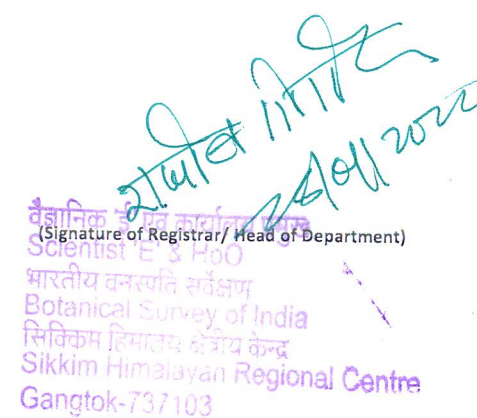 राजीव गोगोई
(Signature of Registrar/ Head of Department)
वैज्ञानिक ई एवं कार्यालय प्रमुख
Scientist 'E' & HoO
भारतीय वनस्पति सर्वेक्षण
Botanical Survey of India
सिक्किम हिमालय क्षेत्रीय केन्द्र
Sikkim Himalayan Regional Centre
Gangtok-737103